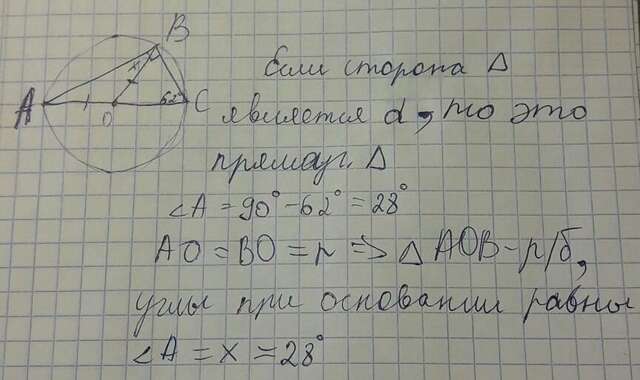 B
x
A
O
62°
C
если сторона Δ
является d, то это
прямоуг. Δ
∠A = 90° - 62° = 28°
AO = BO = r => Δ AOB - р/б,
углы при основании равны
∠A = x = 28°